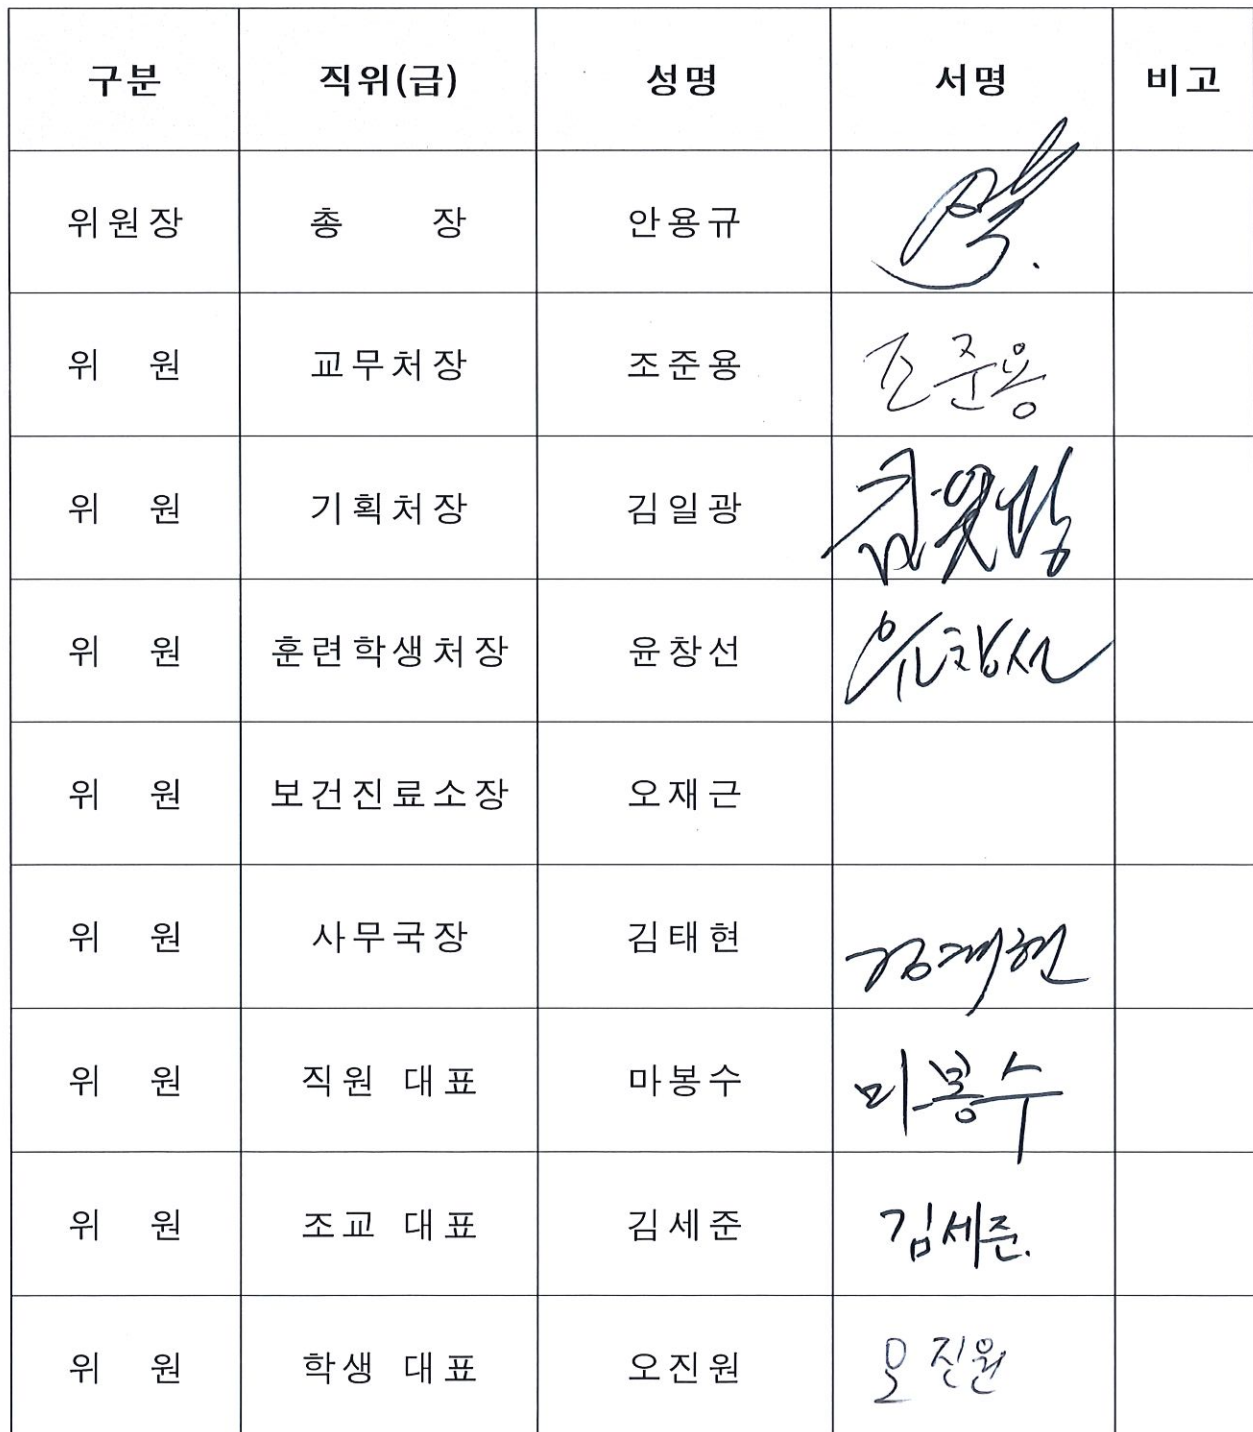 구분 직위(급) 성명 서명 비고
위원장 총 장 안용규
위 원 교무처장 조준용 조준용
위 원 기획처장 김일광
위 원 훈련학생처장 윤창선 윤창선
위 원 보건진료소장 오재근
위 원 사무국장 김태현 김태현
위 원 직원 대표 마봉수 마봉수
위 원 조교 대표 김세준 김세준.
위 원 학생 대표 오진원 오진원